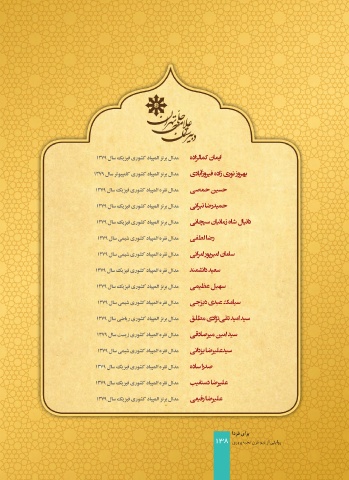 دبیرستان علامه حلی تهران
ایمان کمالزاده مدال برنز المپیاد کشوری فیزیک، سال ۱۳۷۹
بهروز نوری زاده فیروزآبادی مدال برنز المپیاد کشوری کامپیوتر سال ۱۳۷۹
حسین حمصی مدال نقره المپیاد کشوری فیزیک، سال ۱۳۷۹
حمیدرضا تیرانی مدال برنز المپیاد کشوری فیزیک، سال ۱۳۷۹
دانیال شاه زمانیان سیرجانی مدال نقره المپیاد کشوری شیمی سال ۱۳۷۹
رضا لطفی مدال نقره المپیاد کشوری شیمی سال ۱۳۷۹
سامان امیرپور امرائی مدال نقره المپیاد کشوری شیمی سال ۱۳۷۹
سعید دانشمند مدال نقره المپیاد کشوری فیزیک، سال ۱۳۷۹
سهیل عظیمی مدال برنز المپیاد کشوری فیزیک، سال ۱۳۷۹
سیامک عبدی دیزجی مدال نقره المپیاد کشوری شیمی سال ۱۳۷۹
سید امید تقی نژادی مطلق مدال برنز المپیاد کشوری ریاضی سال ۱۳۷۹
سید امین میرصادقی مدال نقره المپیاد کشوری زیست سال ۱۳۷۹
سیدعلیرضا یزدانی مدال نقره المپیاد کشوری شیمی سال ۱۳۷۹
صدرا ساده مدال نقره المپیاد کشوری فیزیک، سال ۱۳۷۹
علیرضا دستغیب مدال نقره المپیاد کشوری فیزیک، سال ۱۳۷۹
علیرضا رفیعی مدال برنز المپیاد کشوری فیزیک، سال ۱۳۷۹
برای فردا
۱۳۸